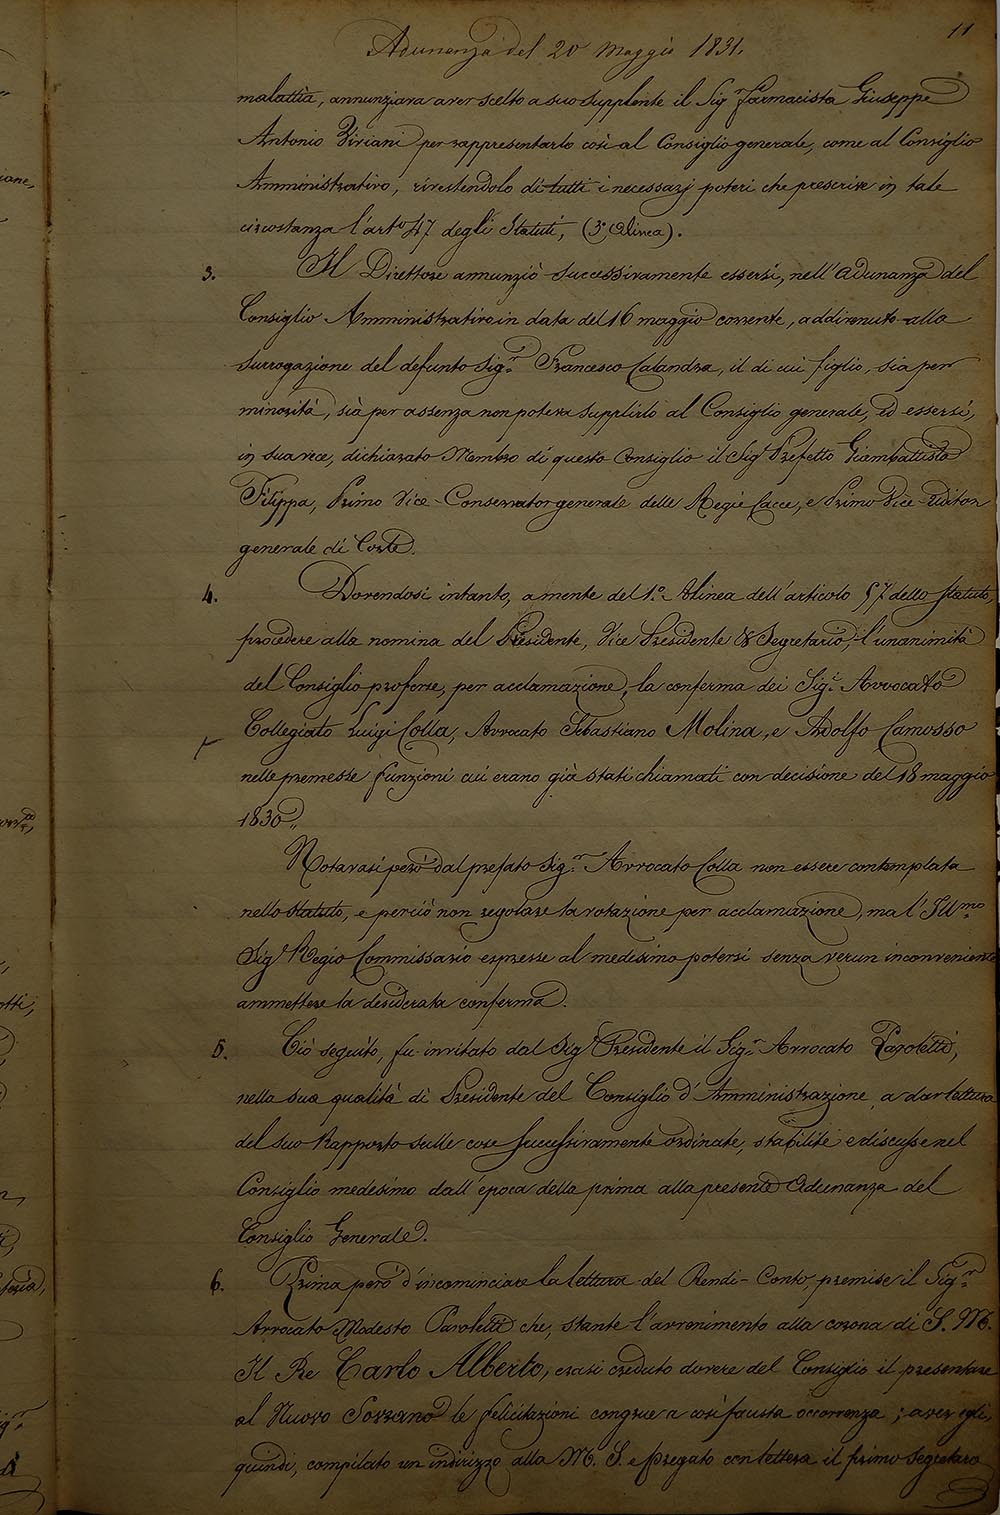 11
Adunanza del 20 Maggio 1831.
malattia, annunziava aver scelto a suo supplente il Sigr. Farmacista Giuseppe
Antonio Viviani per rappresentarlo così al Consiglio generale, come al Consiglio
Amministrativo, rivestendolo di tutti i necessarj poteri che prescrive in tale
circostanza l'arto. 47 degli Statuti, (3° Alinea).
3. Il Direttore annunziò successivamente essersi, nell'Adunanza del
Consiglio Amministrativo in data del 16 maggio corrente, addivenuto alla
surrogazione del defunto Sigr. Francesco Calandra, il di cui figlio, sia per
minorità, sia per assenza non poteva supplirlo al Consiglio generale, ed essersi,
in sua vece, dichiarato Membro di questo Consiglio il Sigr. Prefetto Giambattista
Filippa, Primo Vice-Conservator generale delle Regie Cacce, e Primo Vice-Uditor
generale di Corte.
4. Dovendosi intanto, a mente del 1°. Alinea dell'articolo 57 dello Statuto,
procedere alla nomina del Presidente, Vice Presidente & Segretario, l'unanimità
del Consiglio proferse, per acclamazione, la conferma dei Sigi. Avvocato
Collegiato Luigi Colla, Avvocato Sebastiano Molina, e Adolfo Camosso
nelle premesse funzioni cui erano già stati chiamati con decisione del 18 maggio
1830.
Notavasi però dal prefato Sigr. Avvocato Colla non essere contemplata
nello Statuto, e perciò non regolare la votazione per acclamazione, ma l'Illmo.
Sigr. Regio Commissario espresse al medesimo potersi senza verun inconveniente
ammettere la desiderata conferma.
5. Ciò seguito, fu invitato dal Sigr. Presidente il Sigr. Avvocato Paroletti,
nella sua qualità di Presidente del Consiglio d'Amministrazione a dar lettura
del suo Rapporto sulle cose successivamente ordinate, stabilite e discusse nel
Consiglio medesimo dall'epoca della prima alla presente Adunanza del
Consiglio Generale.
6. Prima però d'incominciare la lettura del Rendi-Conto, premise il Sigr.
Avvocato Modesto Paroletti che, stante l'avvenimento alla corona di S. M.
Il Re Carlo Alberto, erasi creduto dovere del Consiglio il presentare
al Nuovo Sovrano le felicitazioni congrue a così fausta occorrenza; aver egli,
quindi, compilato un indirizzo alla M. S. e pregato con lettera il primo Segretaro